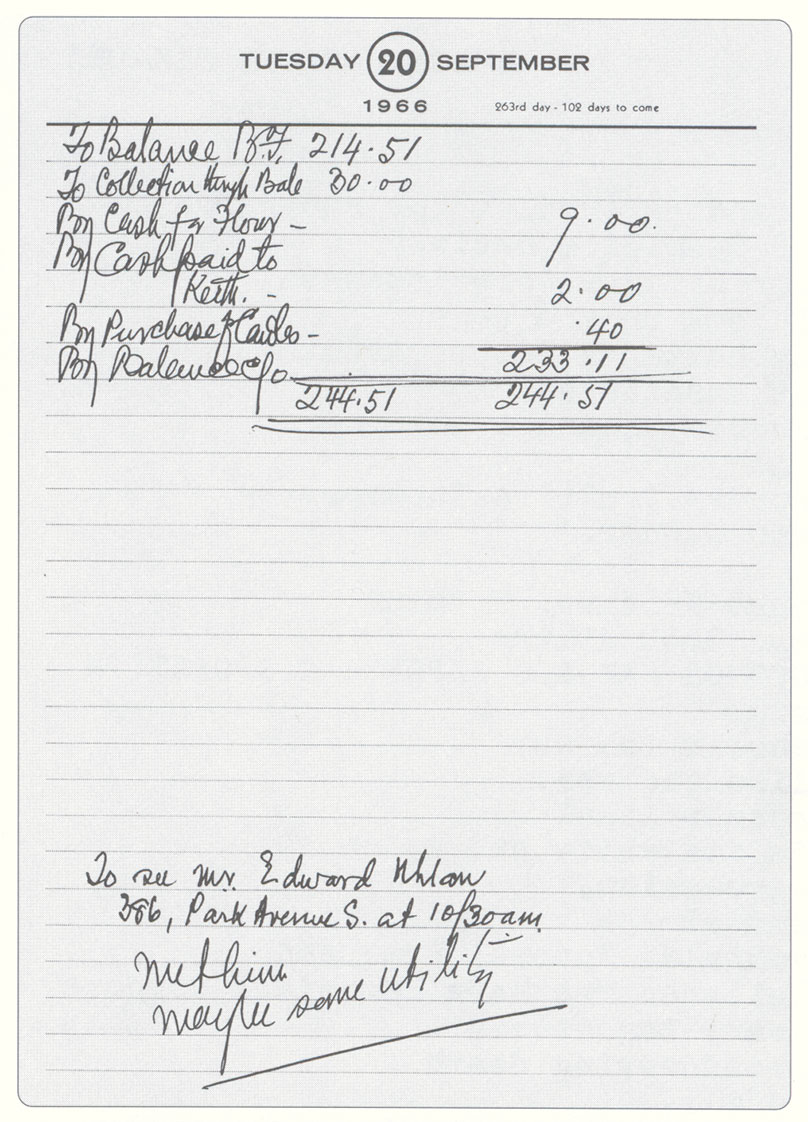 TUESDAY 20 SEPTEMBER
1966 263rd day - 102 days to come
To Balance B.F. 214.51
To Collection through Bale 30.00
By Cash for Flour - 9.00.
By Cash paid to
Keith. - 2.00
By Purchase of - .40
By Balance c/o 233.11
244.51 244.51
To see mr. Edward
386, Park Avenue S. at 10/30am
met him
maybe some utility